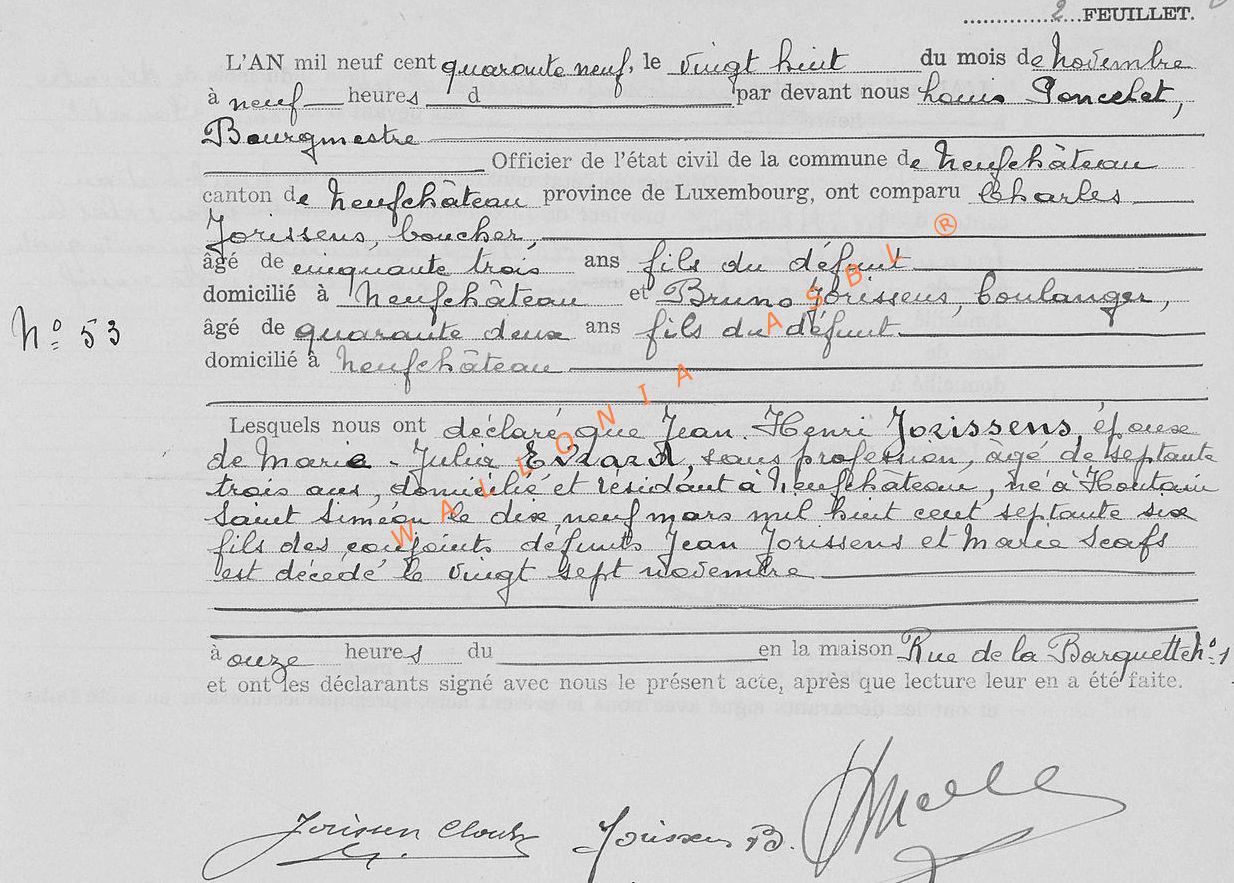 2 FEUILLET.
L'AN mil neuf cent quarante neuf, le vingt huit du mois de Novembre
à neuf heures d par devant nous Louis Poncelet,
Bourgmestre
Officier de l'état civil de la commune de Neufchâteau
canton de Neufchâteau province de Luxembourg, ont comparu Charles
Jorissens, boucher,
âgé de cinquante trois ans fils du défunt
domicilié à Neufchâteau et Bruno Jorissens, boulanger,
N° 53
âgé de quarante deux ans fils du défunt
domicilié à Neufchâteau
Lesquels nous ont déclaré que Jean Henri Jorissens, époux
de Marie Julia Evrard, sans profession, âgé de septante
trois ans, domicilié et résidant à Neufchâteau, né à Houtain
Saint Siméon le dix neuf mars mil huit cent septante six
fils des conjoints défunts Jean Jorissens et Marie Scafs
est décédé le vingt sept novembre
à onze heures du en la maison Rue de la Barquette n° 1
et ont les déclarants signé avec nous le présent acte, après que lecture leur en a été faite.
Jorissen Jorissens B.
WALLONIA ASBL ®